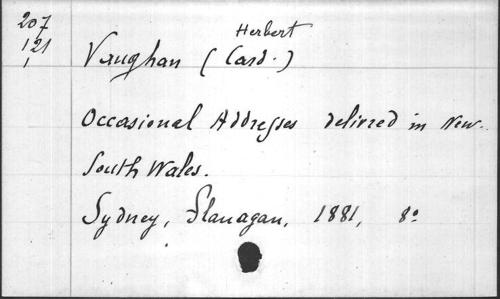 207
121
1
Herbert
Vaughan (Card.)
Occasional Addresses delivred in New-
South Wales.
Sydney, Flanagan, 1881, 8º